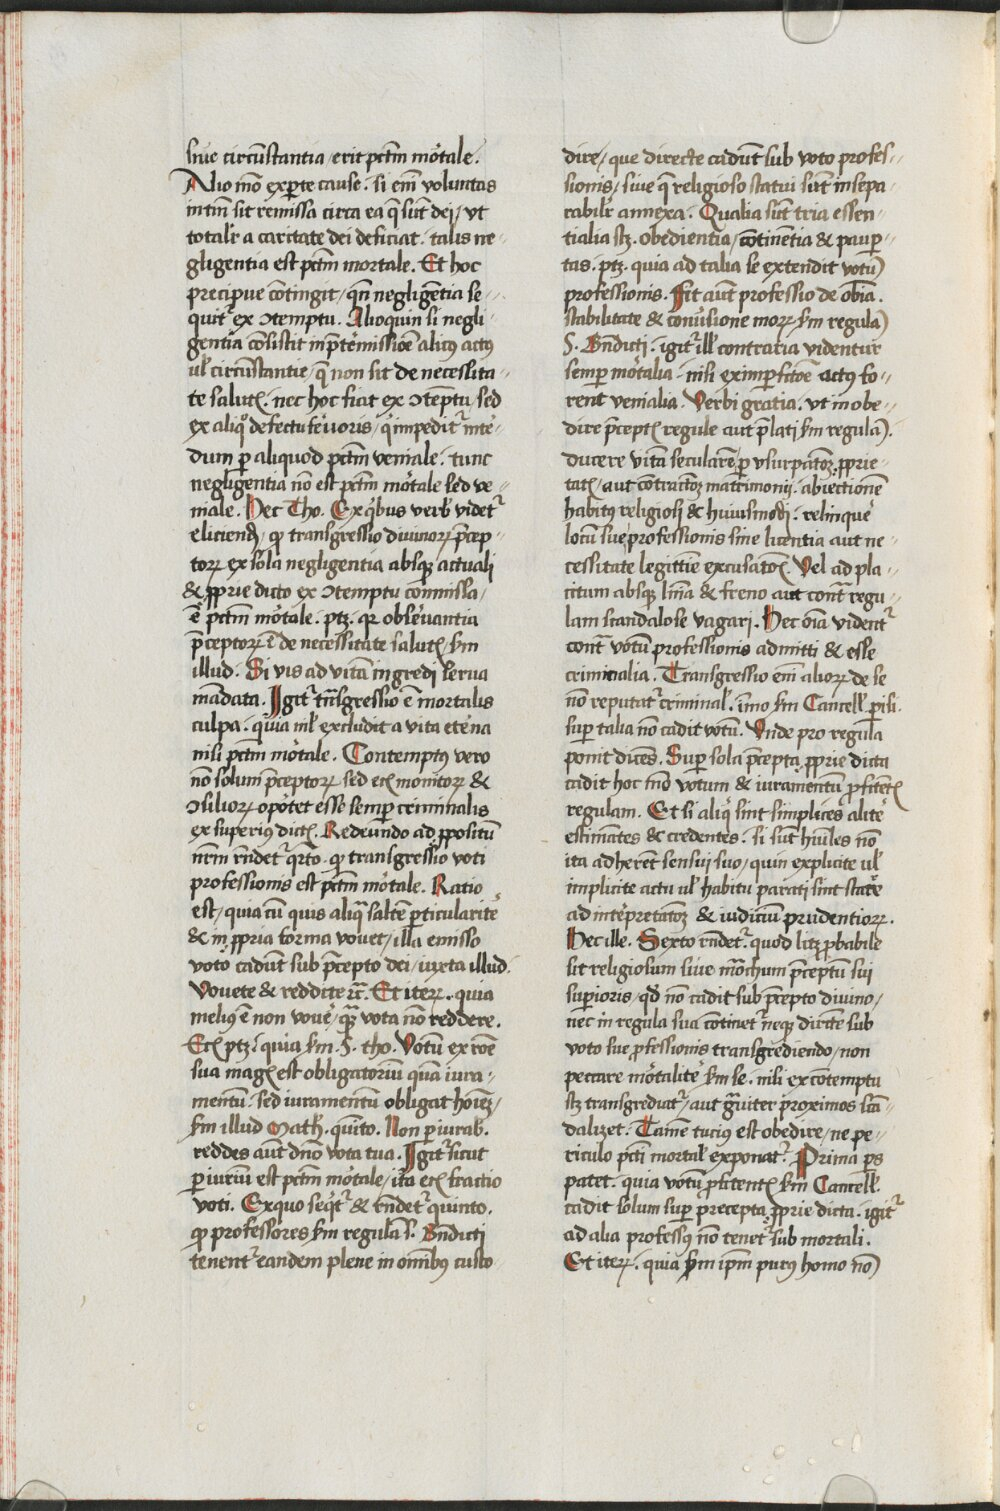 siue circūstantia / erit pctm̄ mo͛tale .
Alio mo͞ ex p̱te cause . si em̄ voluntas
intm̄ sit remissa circa ea q̄ sūt dei / vt
totalr̄ a caritate dei deficiat . talis ne-
gligentia est pctm̄ mortale . Et hoc
precipue cōtingit / qn̄ negligētia se-
quit᷑ ex ↄtemptu . Alioquin si negli-
gentia cōsistit in p̄t͛missiōe alicꝰ actꝰ
ul̓ circūstantie / q̄ non sit de necessita-
te salutꝭ . nec hoc fiat ex ↄtēptu / sed
ex aliqͦ defectu fe͛uoris / qͥ impedit᷑ int͛-
dum ꝑ aliquod pctm̄ veniale . tunc
negligentia nō est pctm̄ mo͛tale sed ve-
niale . Hec Tho . Ex qͥbus verb̓ videt᷑
eliciend̓ / ꝙ transgressio diuinoꝝ p̄cep-
toꝝ ex sola negligentia absqꝫ actuali
& ꝓprie dicto ex ↄtemptu cōmissa /
ē pctm̄ mo͛tale . ptꝫ . qꝛ obse͛uantia
p̄ceptoꝝ ē de necessitate salutꝭ sm̄
illud . Si vis ad vitā ingredi serua
mādata . Igit᷑ trn̄sgressio ē mortalis
culpa . quia nl̓ excludit a vita et͛na
nisi pctm̄ mo͛tale . Contemptꝰ vero
nō solum p̄ceptoꝝ sed etꝭ monitoꝝ &
ↄsilioꝝ opo͛tet esse semper criminalis
ex superiꝰ dictꝭ . Redeundo ad ꝓpositū
nrm̄ rn̄det᷑ qͬto . ꝙ transgressio voti
professionis est pctm̄ mo͛tale . Ratio
est / quia cū quis aliqͣ saltē ꝑticularit͛
& in ꝓpria forma vouet / illa emisso
voto cadūt sub p̄cepto dei / iuxta illud .
Vouete & reddite ⁊c̄ . Et iteꝝ . quia
meliꝰ ē non voue͛ / qꝫ vota nō reddere .
Etꝭ ptꝫ . quia sm̄ S . tho . Votū ex rōe
sua magꝭ est obligatoriū quā iura-
mentū . sed iuramentū obligat hoīeꝫ /
sm̄ illud Math̓ . quīto . Non ꝑiurab̓ .
reddes aūt dn̄o vota tua . Igit᷑ sicut
ꝑiuriū est pctm̄ mo͛tale / ita etꝭ fractio
voti . Ex quo seqͥt᷑ & rn̄det᷑ quinto .
ꝙ professores sm̄ regulā s . Bn̄dicti
tenent᷑ eandem plene in omībꝰ custo-
dire / que directe cadūt sub voto profes-
sionis / siue q̄ religioso statui sūt insepa-
rabilr̄ annexa . Qualia sūt tria essen-
tialia sꝫ . obedientia / cōtinētia & pauꝑ-
tas . ptꝫ . quia ad talia se extendit votū
professionis . Fit aūt professio de ob̄ia .
stabilitate & conu͛sione moꝝ sm̄ regulā
S . Bn̄dicti . igit᷑ ill̓ contraria videntur
semꝑ mo͛talia . nisi ex imꝑfctōe actꝰ fo-
rent venialia . Verbi gratia . vt inobe-
dire p̄ceptꝭ regule aut p̄lati sm̄ regulā .
ducere vitā secularē / ꝑ vsurpatōꝫ ꝓprie-
tatꝭ / aut cōtractōꝫ matrimonij . abiectionē
habitꝰ religiosi & huiusmodi . relinque͛
locū sue professionis sine licentia aut ne-
cessitate legittīe excusatōꝭ . Vel ad pla-
citum absqꝫ līnia & freno aut contͣ regu-
lam scandalose vagari . Hec oīa vident᷑
contͣ votū professionis admitti & esse
criminalia . Transgressio em̄ alioꝝ de se
nō reputat᷑ criminal̓ . īmo sm̄ Cancell̓ . parisi .
suꝑ talia nō cadit votū . Vnde pro regula
ponit dicēs . Suꝑ sola p̄cepta ꝓprie dicta
cadit hoc mō votum & iuramentū ꝓfitētꝭ
regulam . Et si aliqͥ sint simplices alit͛
estimātes & credentes . si sūt hūiles nō
ita adherēt sensui suo / quin explicite ul̓
implicite actu ul̓ habitu parati sint stare
ad int͛pretatōꝫ & iudiciū prudentioꝝ .
Hec ille . Sexto rn̄det᷑ . quod licꝫ ꝓbabile
sit religiosum siue mōchum p̄ceptū sui
supīoris / qd̓ nō cadit sub p̄cepto diuino /
nec in regula sua cōtinet᷑ neqꝫ dircte sub
voto sue ꝓfessionis transgrediendo / non
peccare mo͛talit͛ sm̄ se . nisi ex cōtemptu
sꝫ transgrediat᷑ / aut gͣuiter proximos scā-
dalizet . Tamē tucius est obedire / ne pe-
riculo pcti mortal̓ exponat᷑ . Prima ps
patet . quia votū ꝓfitentꝭ sm̄ Cancell̓ .
cadit solum suꝑ precepta ꝓprie dicta . igit᷑
ad alia professꝰ nō tenet᷑ sub mortali .
Et iteꝝ . quia sm̄ ipm̄ purꝰ homo nō